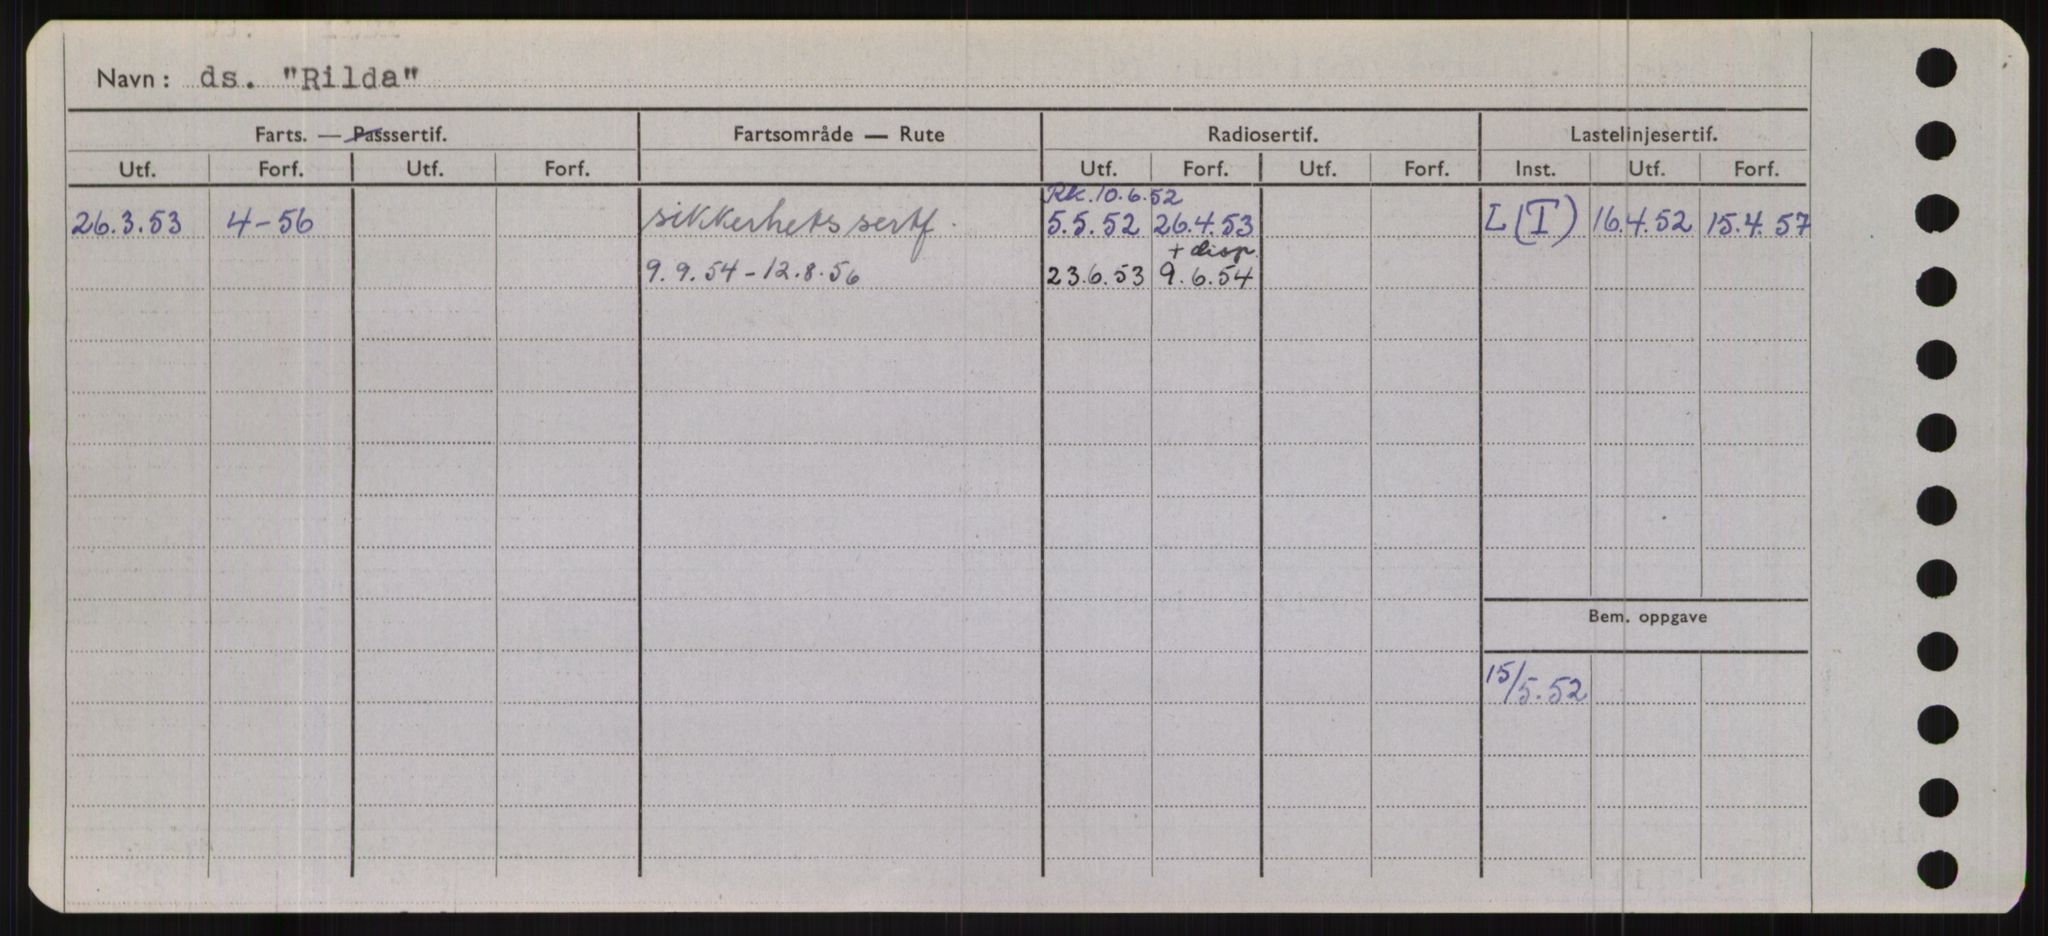 Navn: ds. "Rilda"
Farts. — Passsertif. Fartsområde — Rute Radiosertif. Lastelinjesertif.
Utf. Forf. Utf. Forf. Utf. Forf. Utf. Forf. Inst. Utf. Forf.
Rk. 10.6.52
26.3.53 4-56 sikkerhetssertf. 5.5.52 26.4.53 L(I) 16.4.52 15.4.57
+ disp.
9.9.54-12.8.56 23.6.53 9.6.54
Bem. oppgave
15/5.52